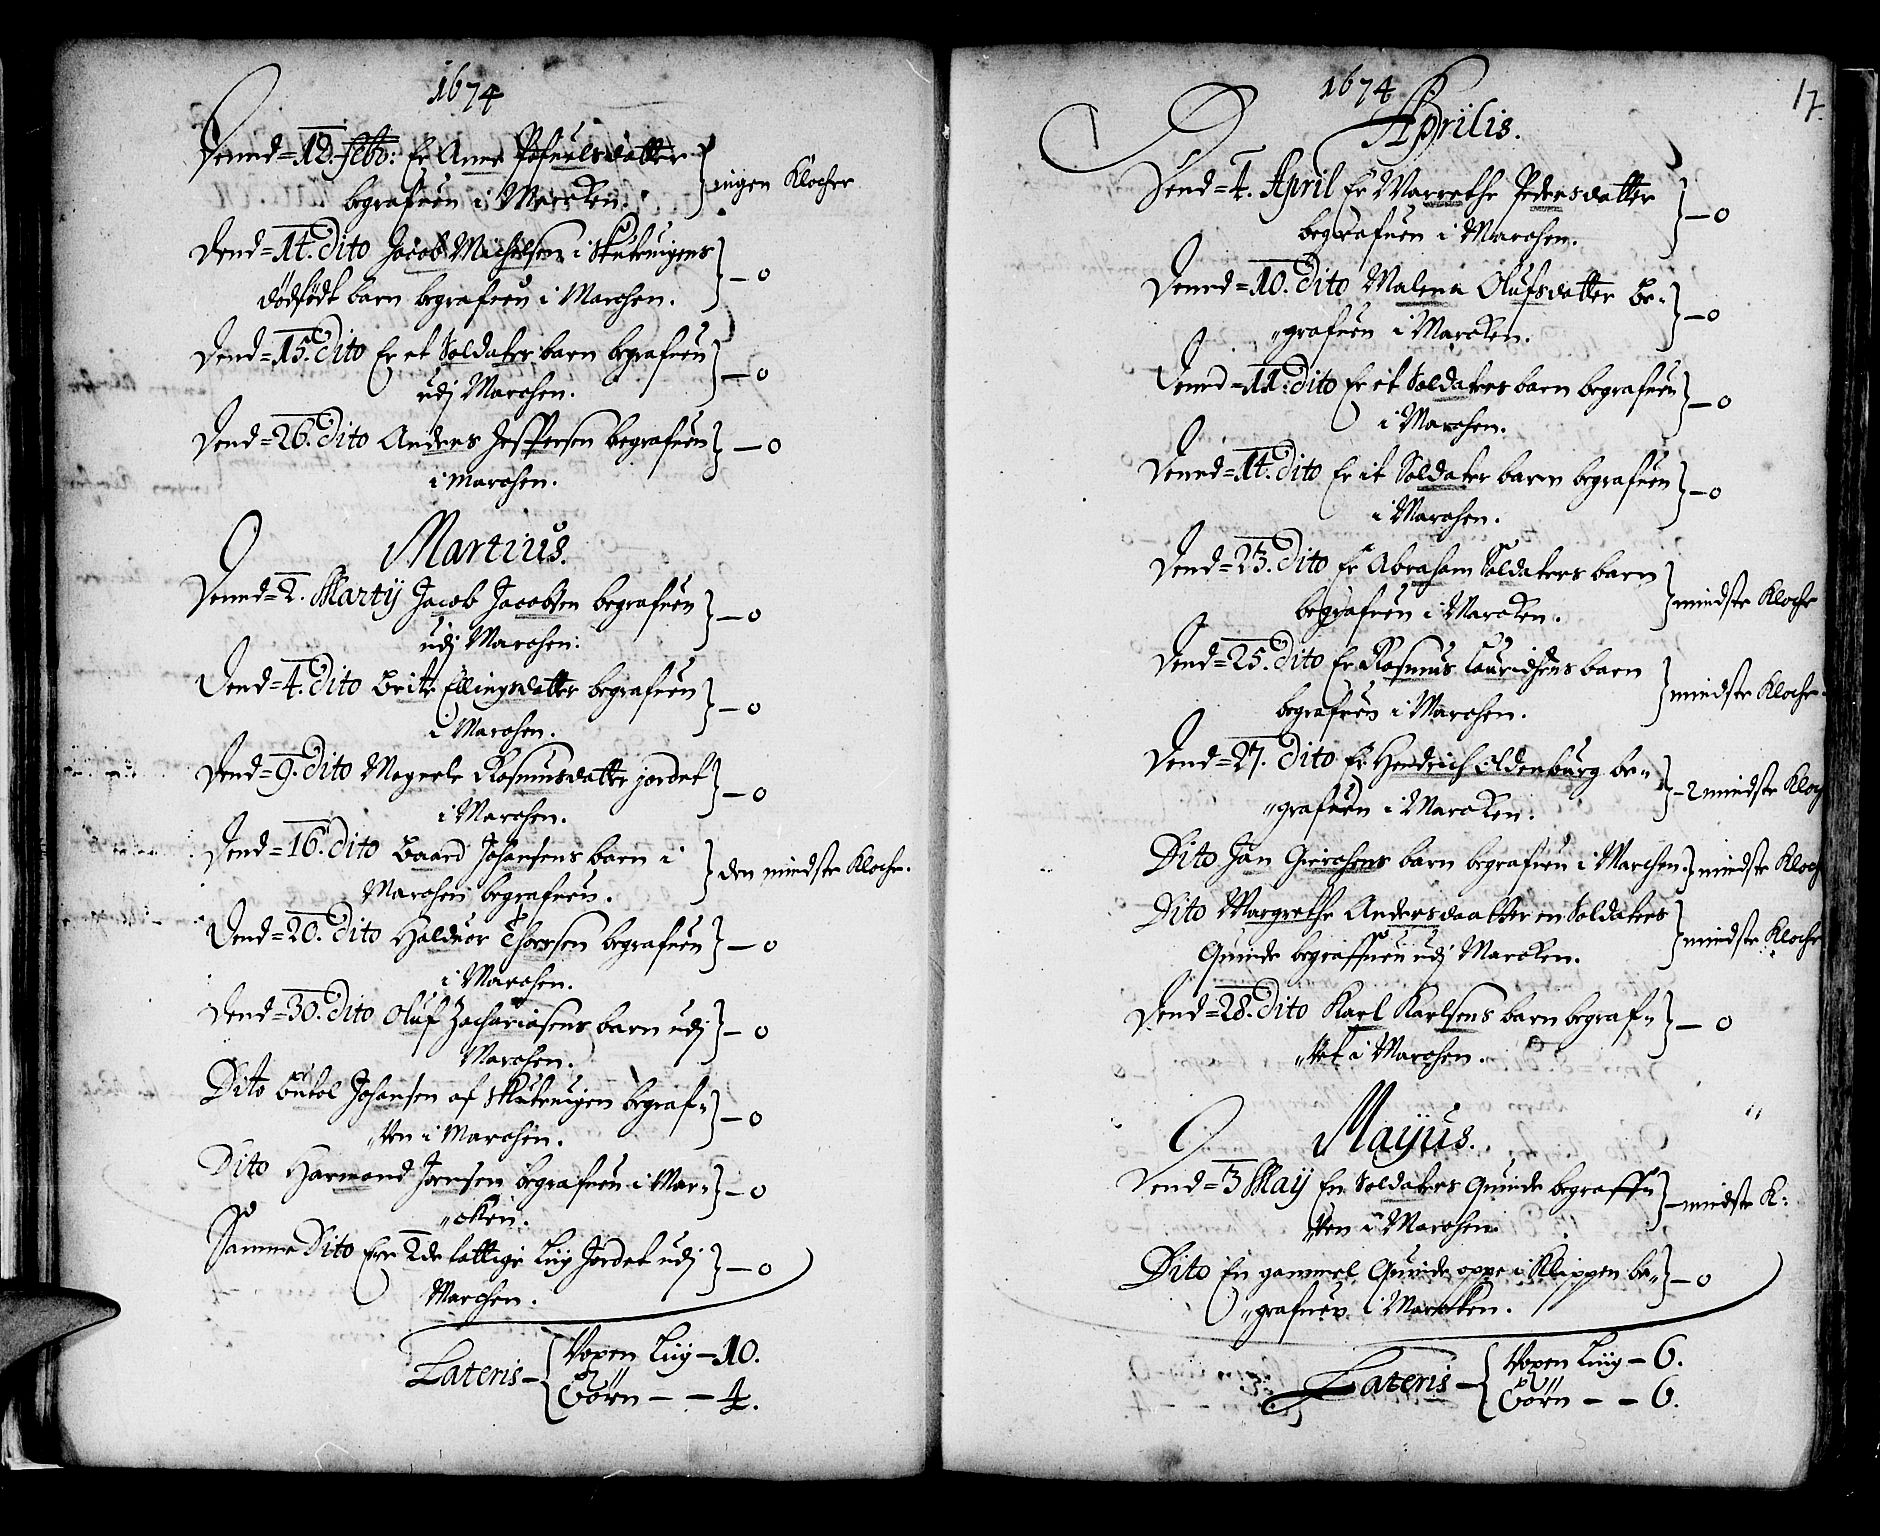 1674
Dennd=12. febr: Er Anne Pofvelsdatter
begrafuen i Marcken.
ingen Klocher
Dend=14. Dito Jacob Michelsen i Skuteuigens
dödfödt barn begrafuen i Marchen.
—0
Dend=15. Dito Er et Soldater barn begrafuen
udj Marchen.
—0
Dend=26. Dito Anders Jeffersen begrafuen
i Marchen.
—0
Martius.
Dennd=2. Martij Jacob Jacobsen begrafuen
udj Marchen:
—0
Dend=4. Dito Brite Ellingsdatter begrafuen
i Marchen.
—0
Dend=9. Dito Magnele Rasmusdatter jordet
i Marchen.
—0
Dend=16. Dito Baard Johansens barn i
Marchen begrafuen.
den mindste Klocke.
Dend=20. Dito Halduor Thorsen begrafuen
i Marchen.
—0
Dend=30. Dito Oluf Zachariasens barn udj
Marchen.
—0
Dito Botol Johansen af Skuteuigen begraf„
„ven i Marchen.
—0
Dito Harmand Jensen begrafuen i Mar„
„cken.
—0
Samme Dito Ere 2de fattige Luy Jordet udj
Marchen.
—0
Lateris—
Voxen Luy—10.
Börn — —4.
17.
1674
Aprilis.
Dend=4. April Er Marrethe Pedersdatter
begrafuen i Marchen.
—0
Dennd=10. Dito Malena Olufsdatter be„
„grafuen i Marcken.
—0
Dennd=11. Dito Er et Soldaters barn begrafuen
i Marchen.
—0
Dennd=14. Dito Er it Soldater barn begrafuen
i Marchen.
—0
Dend=23. Dito Er Abraham Soldaters barn
begrafuen i Marcken.
mindste Klocke
Dend=25. Dito Er Rasmus Lauridsens barn
begrafuen i Marchen.
mindste Klocke
Dend=27. Dito Er Hendrich Oldenburg be„
„grafuen i Marcken.
—2 mindste Kloc
Dito Jan Gierchens barn begrafuen i Marchen.
mindste Kloc
Dito Margrethe Andersdaatter en Soldaters
Quinde begraffuen udj Marcken.
mindste Klocke
Dend=28. Dito Karl Karlsens barn begraf„
„vet i Marchen.
—0
Mayus.
Dend=3 May En Soldaters Quinde begraffu
„ven i Marchen.
—mindste K:
Dito En gammel Quinde oppe i Klippen be„
„grafuen i Marcken.
—0
Lateris—
Voxen Luy—6.
Börn — —6.